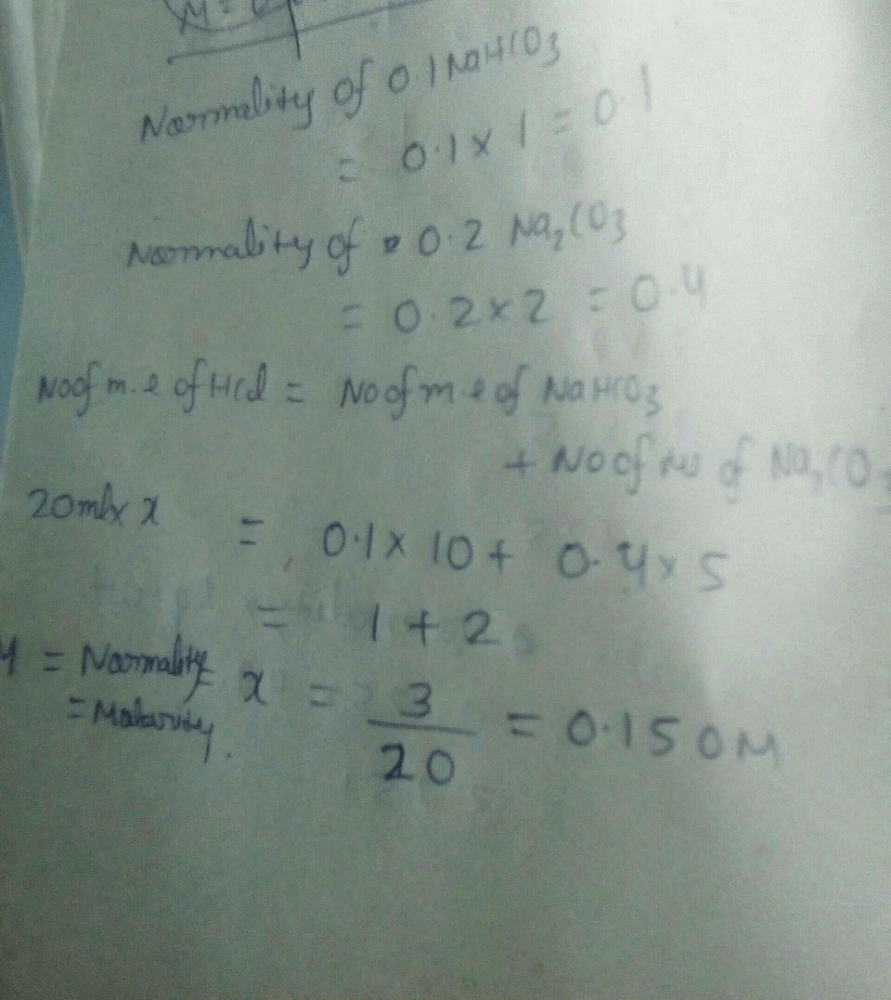 M =
Normality of 0.1 NaHCO3
= 0.1 x 1 = 0.1
Normality of 0.2 Na2CO3
= 0.2 x 2 = 0.4
No of m.e of HCl = No of m.e of NaHCO3
+ No of of Na2CO3
20ml x x = 0.1 x 10 + 0.4 x 5
= 1 + 2
= Normality = x = 3/20 = 0.150M
= Molarity.